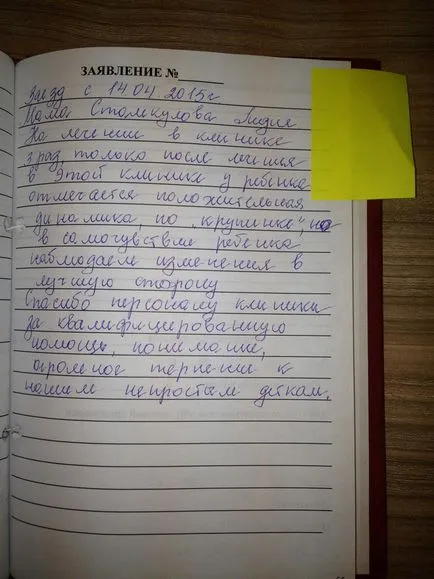 ЗАЯВЛЕНИЕ №
Заезд с 14.04.2015г
Мама Стамкулова Лидия
На лечении в клинике
3 раз, только после лечения
в этой клинике у ребенка
отмечается положительная
динамика, по „крупинке", но
в самочувствие ребенка
наблюдаем изменения в
лучшую сторону
Спасибо персоналу клиники
за квалифицированную
помощь, понимание,
огромное терпение к
нашим непростым деткам.